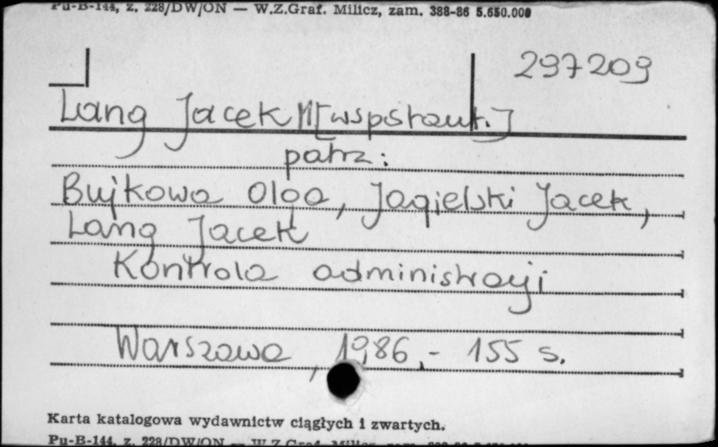 Pu-B-144, z. 228/DW/ON — W.Z.Graf. Milicz, zam. 388-86 5.650.000
297209
Lang Jacek M[współaut.]
patrz:
Bujkowa Olga, Jagielski Jacek,
Lang Jacek
Kontrola administracji
Warszawa, 1986.- 155 s.
Karta katalogowa wydawnictw ciągłych i zwartych.
Pu-B-144, z. 228/DW/ON — W.Z.Graf. Milicz, zam.